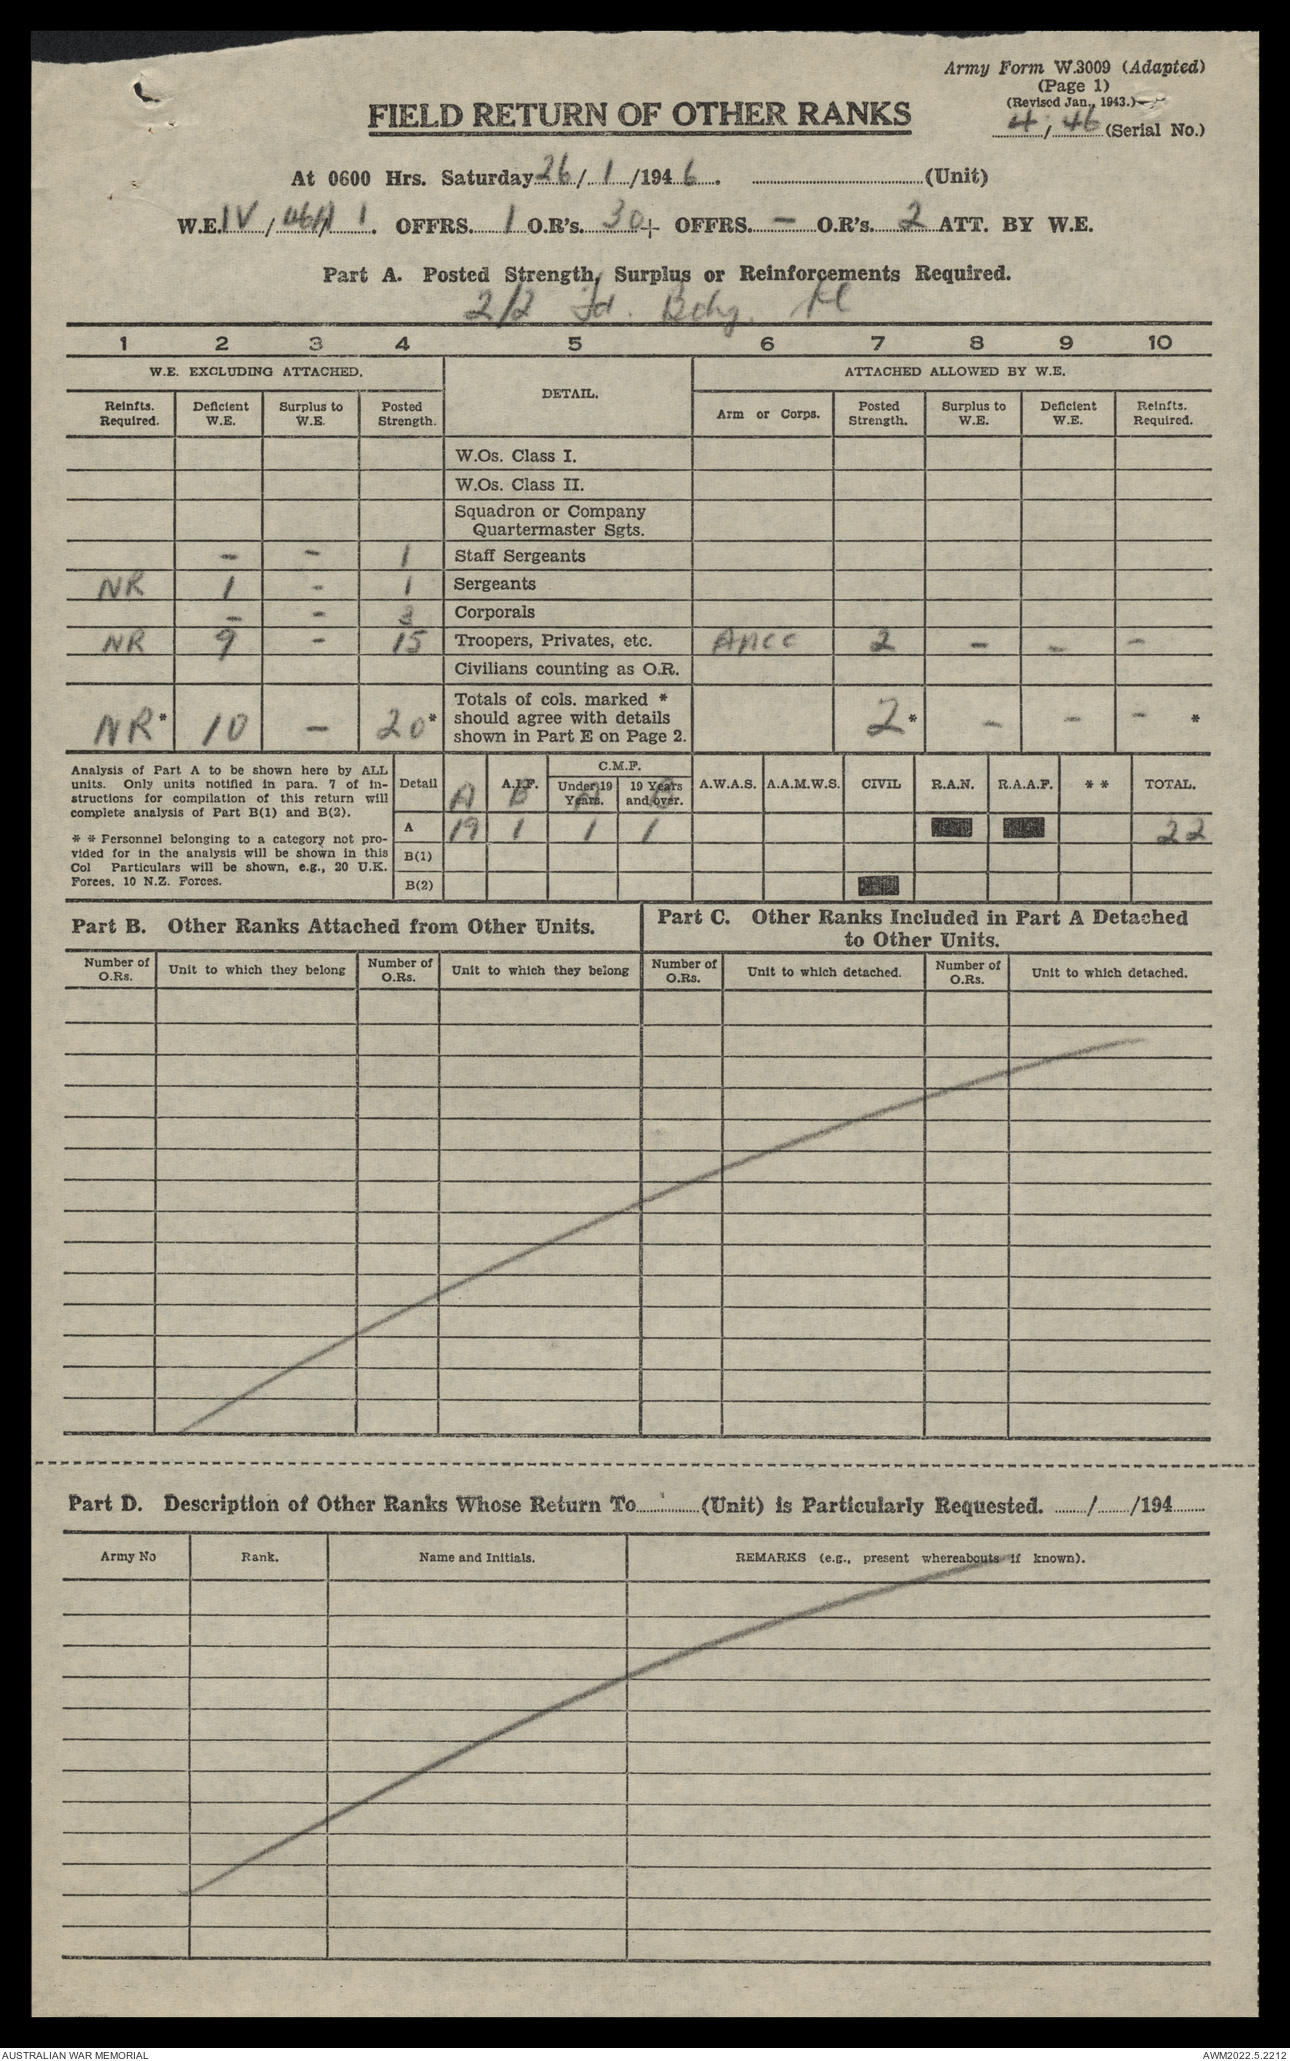 Army Form W.3009 (Adapted)
(Page 1)
(Revised Jan., 1943.)
4/46 (Serial No.)
FIELD RETURN OF OTHER RANKS
At 0600 Hrs. Saturday 26/1/1946. (Unit)
W.E. IV / / 1. OFFRS. 1 O.R's. 30 + OFFRS. - O.R's. 2 ATT. BY W.E.
Part A. Posted Strength, Surplus or Reinforcements Required.
2/2 Fd. Bchy. Pl
1 2 3 4 5 6 7 8 9 10
W.E. EXCLUDING ATTACHED. DETAIL. ATTACHED ALLOWED BY W.E.
Reinfts. Required. Deficient W.E. Surplus to W.E. Posted Strength. Arm or Corps. Posted Strength. Surplus to W.E. Deficient W.E. Reinfts. Required.
W.Os. Class I.
W.Os. Class II.
Squadron or Company
Quartermaster Sgts.
- - 1 Staff Sergeants
NR 1 - 1 Sergeants
- - 3 Corporals
NR 9 - 15 Troopers, Privates, etc. AACC 2 - - -
Civilians counting as O.R.
Totals of cols. marked *
should agree with details
shown in Part E on Page 2.
NR* 10 - 20* 2* - - - *
Analysis of Part A to be shown here by ALL
units. Only units notified in para. 7 of in-
structions for compilation of this return will
complete analysis of Part B(1) and B(2).
* * Personnel belonging to a category not pro-
vided for in the analysis will be shown in this
Col Particulars will be shown, e.g., 20 U.K.
Forces, 10 N.Z. Forces.
Detail A A.I.F. B C.M.F. Under 19 Years. A 19 Years and over. B A.W.A.S. A.A.M.W.S. CIVIL R.A.N. R.A.A.F. * * TOTAL.
A 19 1 1 1 22
B(1)
B(2)
Part B. Other Ranks Attached from Other Units.
Part C. Other Ranks Included in Part A Detached
to Other Units.
Number of O.Rs. Unit to which they belong Number of O.Rs. Unit to which they belong Number of O.Rs. Unit to which detached. Number of O.Rs. Unit to which detached.
Part D. Description of Other Ranks Whose Return To (Unit) is Particularly Requested. / /194
Army No Rank. Name and Initials. REMARKS (e.g., present whereabouts if known).
AUSTRALIAN WAR MEMORIAL AWM2022.5.2212